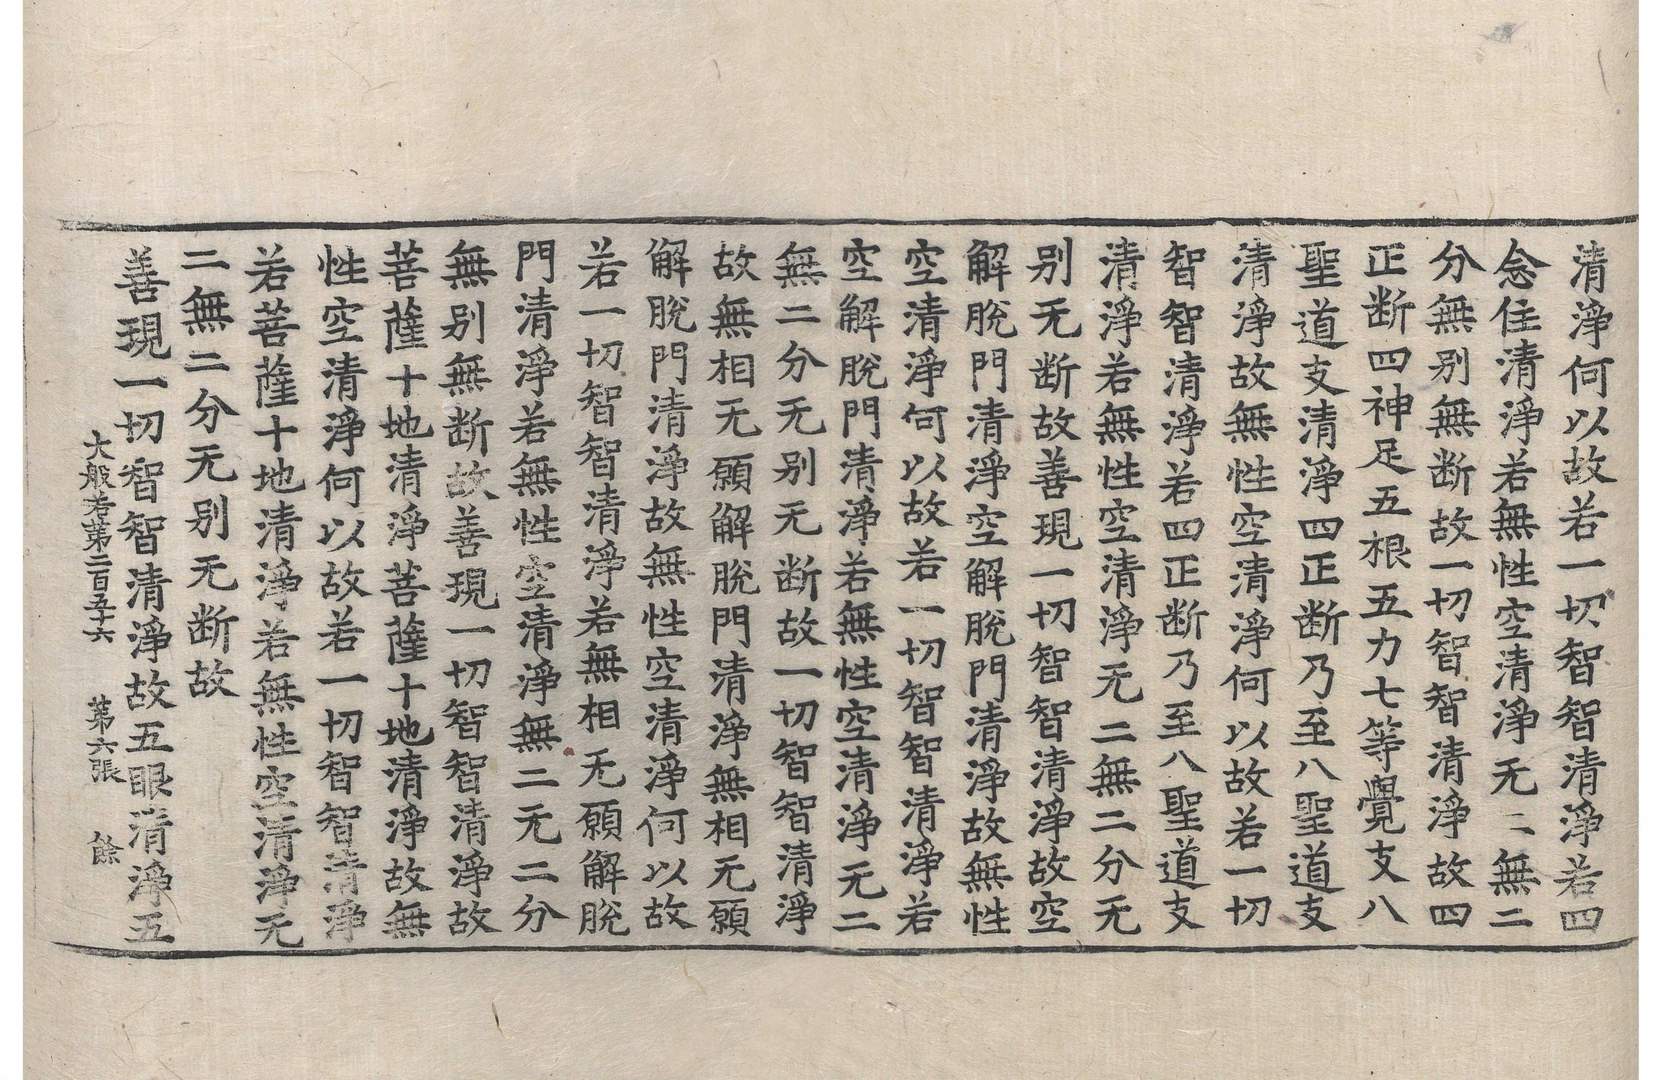 清淨何以故若一切智智清淨若四
念住清淨若無性空清淨无二無二
分無别無断故一切智智清淨故四
正断四神足五根五力七等覺支八
聖道支清淨四正断乃至八聖道支
清淨故無性空清淨何以故若一切
智智清淨若四正断乃至八聖道支
清淨若無性空清淨无二無二分无
别无断故善現一切智智清淨故空
解脫門清淨空解脫門清淨故無性
空清淨何以故若一切智智清淨若
空解脫門清淨若無性空清淨无二
無二分无别无断故一切智智清淨
故無相无願解脫門清淨無相无願
解脫門清淨故無性空清淨何以故
若一切智智清淨若無相无願解脫
門清淨若無性空清淨無二无二分
無别無断故善現一切智智清淨故
菩薩十地清淨菩薩十地清淨故無
性空清淨何以故若一切智智清淨
若菩薩十地清淨若無性空清淨无
二無二分无别无断故
善現一切智智清淨故五眼清淨五
大般若第二百五十六　第六張　餘